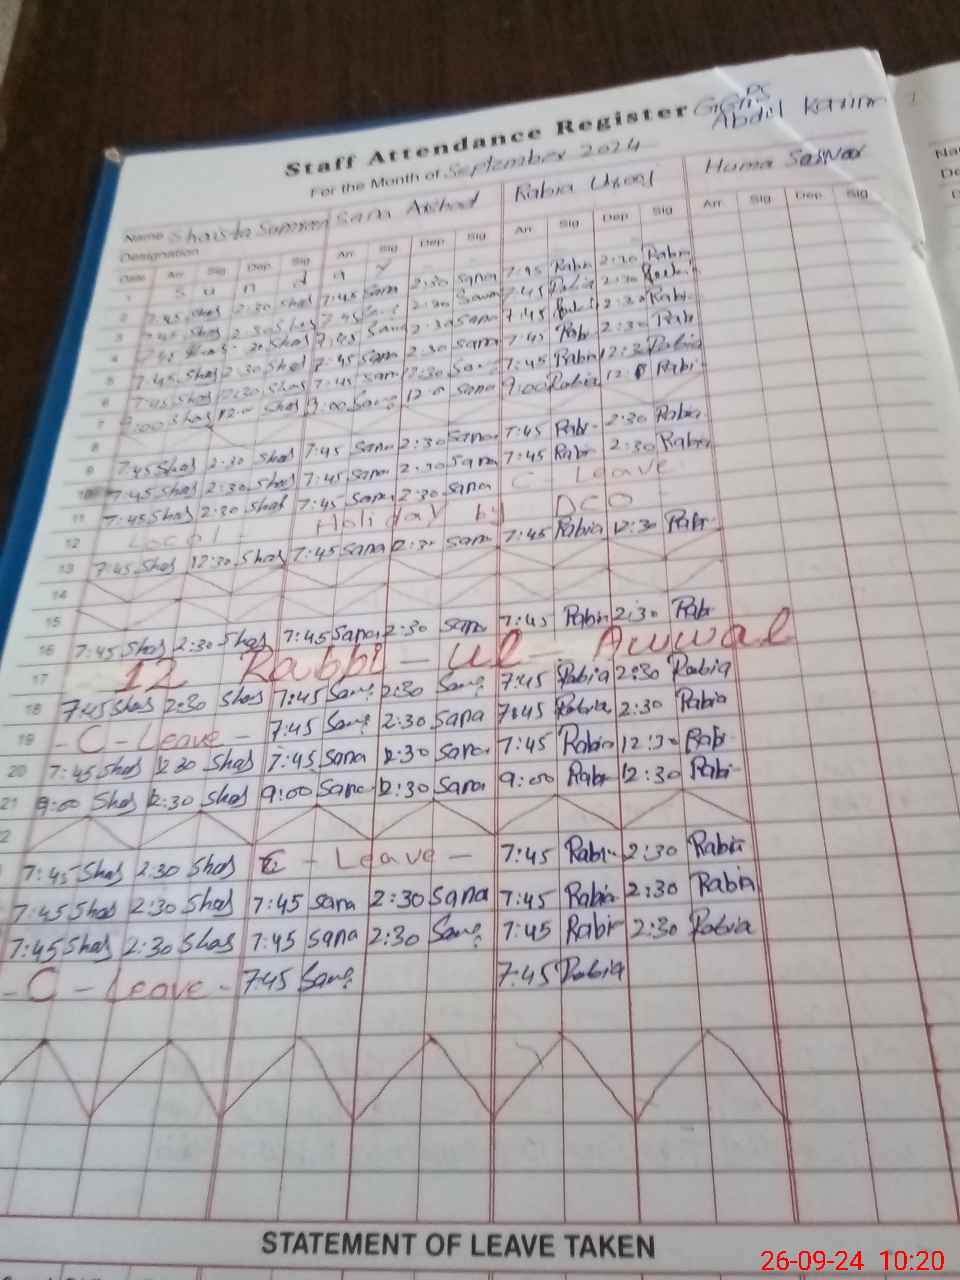 Staff Attendance Register GGPS
Abdul Karim
For the Month of September 2024
Name Shaista Samreen Sana Arshad Rabia Huma
Designation
Date Arr Sig Dep Sig Arr Sig Dep Sig Arr Sig Dep Sig Arr Sig Dep Sig
1 S u n d a y
2 7:45 Shas 2:30 Shas 7:45 Sana 2:30 Sana 7:45 Rabia 2:30 Rabia
3 7:45 Shas 2:30 Shas 7:45 2:30 Sana 7:45 Rabia 2:30
4 Shas 7:45 Sana 2:30 Sana 7:45 2:30 Rabi
5 7:45 Shas 2:30 Shas 7:45 Sana 2:30 Sana 7:45 Rab 2:30 Rab
6 7:45 Shas 12:30 Shas 7:45 Sana 12:30 Sana 7:45 Rabia 12:30 Rabia
7 9:00 Shas Shas 9:00 Sana Sana 9:00 Rabia Rabi
8
9 7:45 Shas 2:30 Shas 7:45 Sana 2:30 Sana 7:45 Rabi 2:30 Rabia
10 7:45 Shas 2:30 Shas 7:45 Sana 2:30 Sana 7:45 Rabi 2:30 Rabia
11 7:45 Shas 2:30 Shas 7:45 Sana 2:30 Sana C - Leave
12 Local - Holiday by DCO -
13 7:45 Shas 12:30 Shas 7:45 Sana 12:30 Sana 7:45 Rabia 12:30 Rabi
14
15
16 7:45 Shas 2:30 Shas 7:45 Sana 2:30 Sana 7:45 Rabia 2:30 Rabi
17 12 Rabbi - ul - Awwal
18 7:45 Shas 2:30 Shas 7:45 Sana 2:30 Sana 7:45 Rabia 2:30 Rabia
19 - C - Leave - 7:45 Sana 2:30 Sana 7:45 Rabia 2:30 Rabia
20 7:45 Shas 12:30 Shas 7:45 Sana 12:30 Sana 7:45 Rabia 12:30 Rabi
21 9:00 Shas 12:30 Shas 9:00 Sana 12:30 Sana 9:00 Rabi 12:30 Rabi
2
7:45 Shas 2:30 Shas C - Leave - 7:45 Rabi 2:30 Rabia
7:45 Shas 2:30 Shas 7:45 Sana 2:30 Sana 7:45 Rabia 2:30 Rabia
7:45 Shas 2:30 Shas 7:45 Sana 2:30 Sana 7:45 Rabi 2:30 Rabia
- C - Leave - 7:45 Sana 7:45 Rabia
STATEMENT OF LEAVE TAKEN
26-09-24 10:20